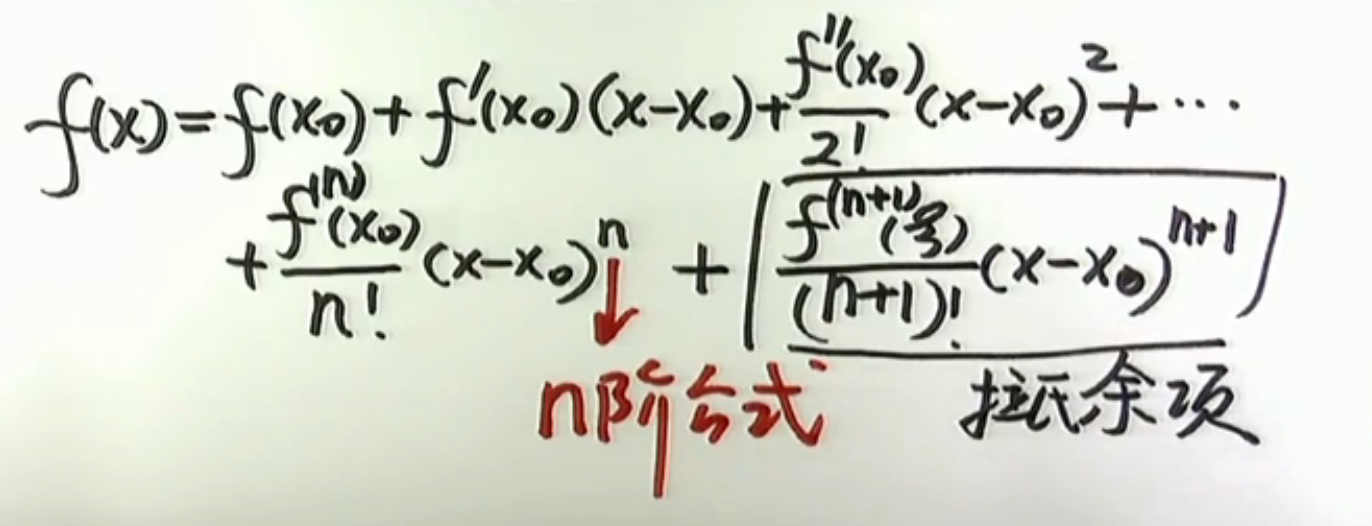 f(x)=f(x₀)+f'(x₀)(x-x₀)+\frac{f''(x₀)}{2!}(x-x₀)²+⋯
+\frac{f^{(n)}(x₀)}{n!}(x-x₀)^n+\frac{f^{(n+1)}(ξ)}{(n+1)!}(x-x₀)^{n+1}
n阶公式 拉氏余项